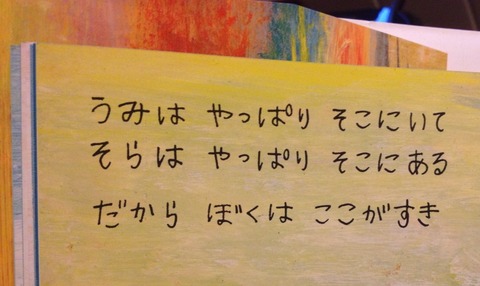 うみは やっぱり そこにいて
そらは やっぱり そこにある
だから ぼくは ここがすき